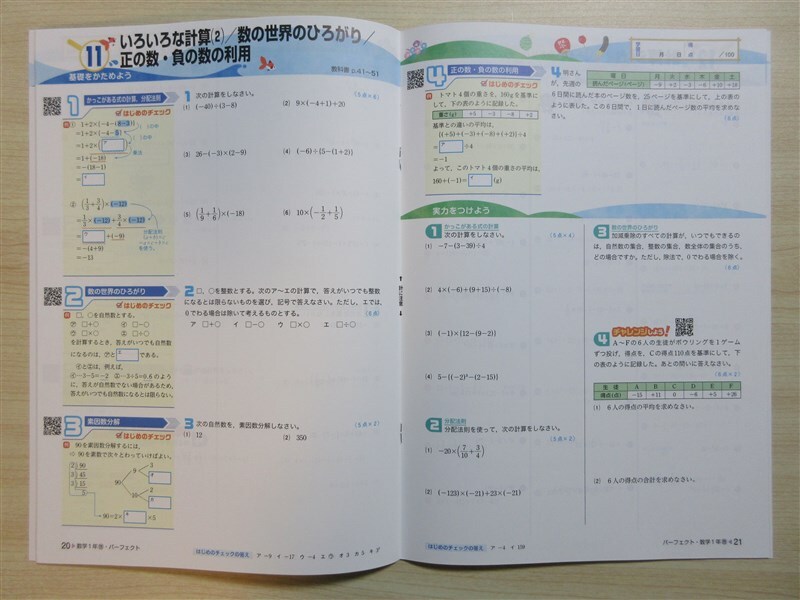 11
いろいろな計算(2)/数の世界のひろがり/
正の数・負の数の利用
基礎をかためよう
教科書 p.41〜51
1 かっこがある式の計算，分配法則
はじめのチェック
① 1+2×{-4-(8-3)}
=1+2×(-4-5)
=1+2×
=1+(-18)
=-(18-1)
=
=-(4+9)
=-13
1 次の計算をしなさい。
(1) (-40)÷(3-8)
(2) 9×(-4+1)+20
(3) 26-(-3)×(2-9)
(4) (-6)÷{5-(1+2)}
(5) (1/9+1/6)×(-18)
(6) 10×(-1/2+1/5)
2 数の世界のひろがり
はじめのチェック
□，○を自然数とする。
㋐ □+○ ㋑ □-○
㋒ □×○ ㋓ □÷○
を計算するとき，答えがいつでも自然
数になるのは，㋐と である。
㋑と㋓は，例えば，
㋑…3-5=-2 ㋓…3÷5=0.6 のよう
に，答えが自然数でない場合があるため，
答えがいつでも自然数になるとは限らない。
2 □，○を整数とする。次のア〜エの計算で，答えがいつでも整数
になるとは限らないものを選び，記号で答えなさい。ただし，エでは，
0でわる場合は除いて考えるものとする。
ア □+○ イ □-○ ウ □×○ エ □÷○
3 素因数分解
はじめのチェック
90を素因数分解するには，
90を素数で次々とわっていけばよい。
2)90
3)45
3)15
5
90 9 3
10 2
→ 90=2× ×5
3 次の自然数を，素因数分解しなさい。
(5点×2)
(1) 12
(2) 350
20 数学1年啓・パーフェクト
はじめのチェックの答え ア -9 イ -17 ウ -4
4 正の数・負の数の利用
はじめのチェック
トマト4個の重さを，160gを基準にし
て，下の表のように記録した。
重さ(g) +5 -3 -8 +2
基準との違いの平均は，
{(+5)+(-3)+(-8)+(+2)}÷4
= ÷4
=-1
よって，このトマト4個の重さの平均は，
160+(-1)= (g)
/100
4 明さん
が，先週の
曜日 月 火 水 木 金 土
6日間に読んだ本のページ数を，25ページを基準にして，上の表の
ように表した。この6日間で，1日に読んだページ数の平均を求めな
さい。
実力をつけよう
1 かっこがある式の計算
次の計算をしなさい。
(5点×4)
(1) -7-(3-39)÷4
(2) 4×(-6)+(9+15)÷(-8)
(3) (-1)×{12-(9-2)}
(4) 5-{(-2)²-(2-15)}
2 分配法則
分配法則を使って，次の計算をしなさい。
(5点×2)
(1) -20×(7/10+3/4)
(2) (-123)×(-21)+23×(-21)
3 数の世界のひろがり
加減乗除のすべての計算が，いつでもできるの
は，自然数の集合，整数の集合，数全体の集合のうち，
どの場合ですか。ただし，除法で，0でわる場合を除く。
4 チャレンジしよう！
A〜Fの6人の生徒がボウリングを1ゲーム
ずつ投げ，得点を，Cの得点110点を基準にして，下
の表のように記録した。あとの問いに答えなさい。
(5点×2)
生徒 A B C D E F
得点(点) -15 +11 0 -6 +5 +26
(1) 6人の得点の平均を求めなさい。
(2) 6人の得点の合計を求めなさい。
はじめのチェックの答え ア -4 イ 159
パーフェクト・数学1年啓 21